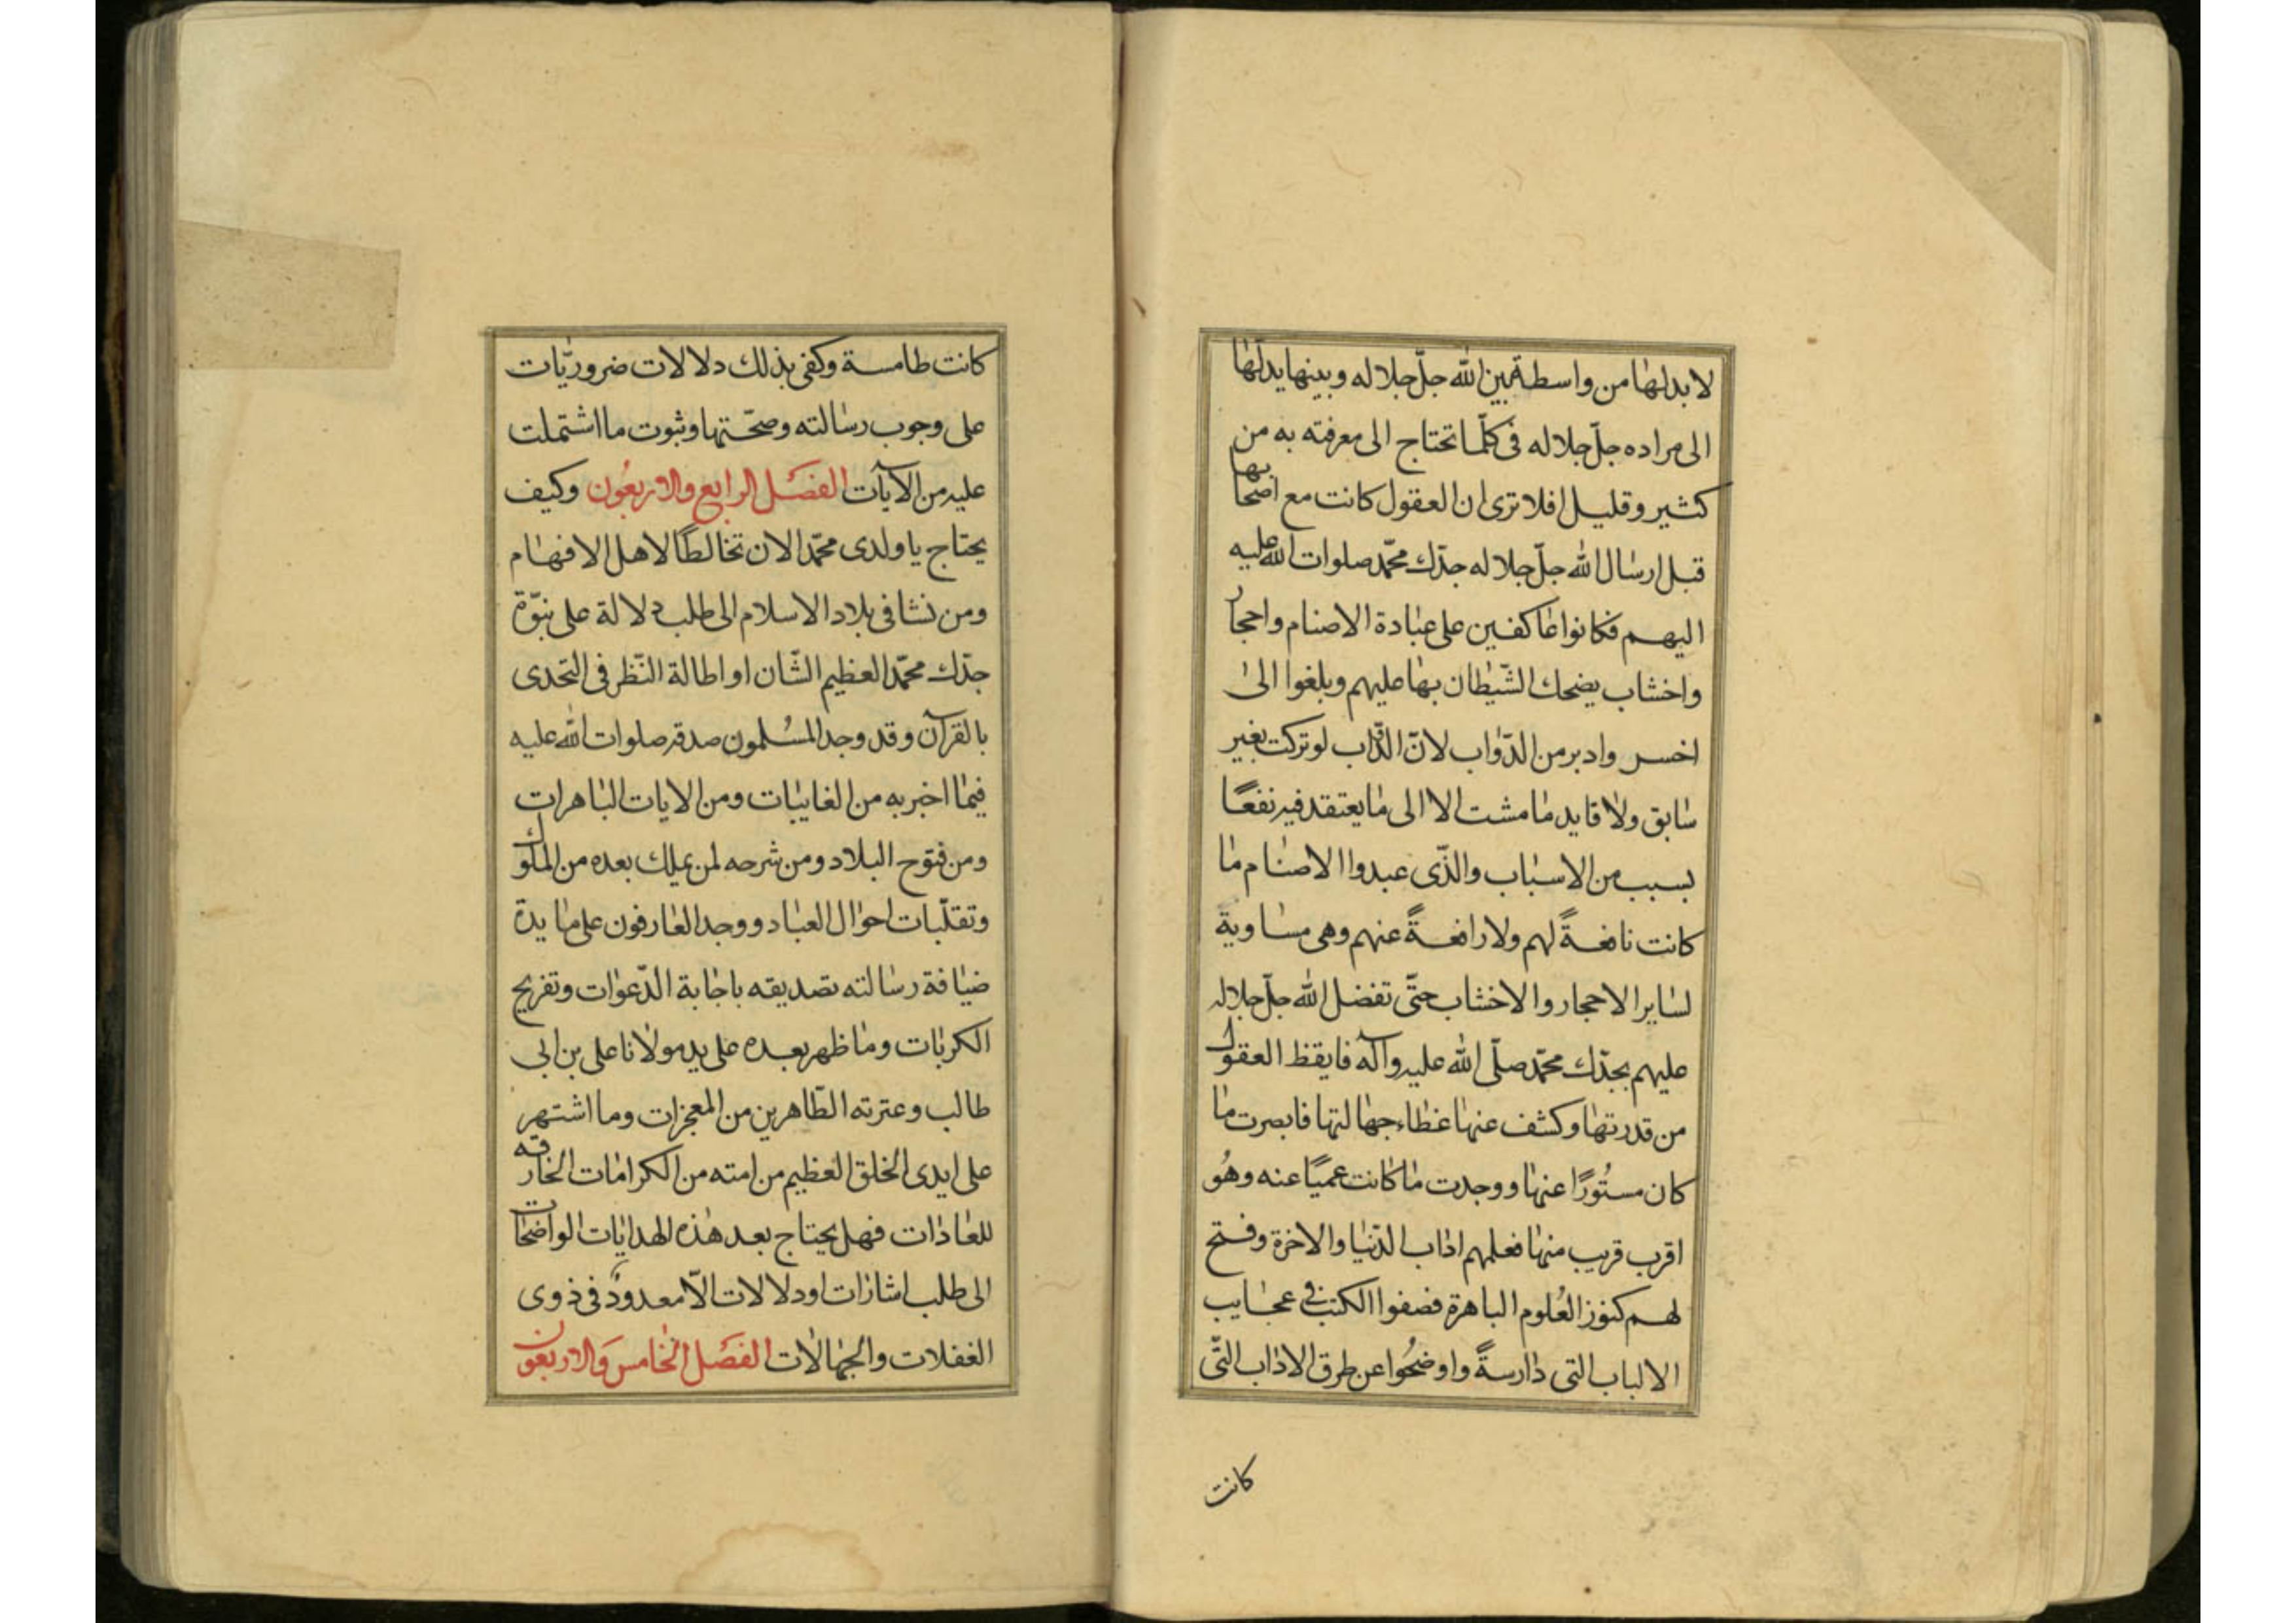 لا بد لها من واسطة بين الله جلّ جلاله وبينها يدلّها
الى مراده جلّ جلاله فى كلّما تحتاج الى معرفته به من
كثير وقليل افلا ترى ان العقول كانت مع اصحابها
قبل ارسال الله جلّ جلاله جدّك محمّد صلوات الله عليه
اليهم فكانوا عاكفين على عبادة الاصنام واحجار
واخشاب يضحك الشّيطان بها عليهم وبلغوا الى
اخسر وادبر من الدّواب لانّ الدّاب لو تركت بغير
سابق ولا قايد ما مشت الا الى ما يعتقد فيه نفعًا
بسبب من الاسباب والذّى عبدوا الاصنام ما
كانت نافعةً لهم ولا رافعةً عنهم وهى مساوية
لساير الاحجار والاخشاب حتّى تفضل الله جلّ جلاله
عليهم بجدّك محمّد صلّى الله عليه وآله فايقظ العقول
من قدرتها وكشف عنها غطاء جهالتها فابصرت ما
كان مستُورًا عنها ووجدت ما كانت عميًا عنه وهُو
اقرب قريب منها فعلمهم اداب الدّنيا والاخرة وفتح
لهم كنوز العُلوم الباهرة فصفوا الكتب فى عجايب
الالباب التى دارسةً واوضحُوا عن طرق الاداب التّى
كانت
كانت طامسة وكفى بذلك دلالات ضروريّات
على وجوب رسالته وصحّتها وثبوت ما اشتملت
عليه من الآيات الفصل الرابع والاربعُون وكيف
يحتاج يا ولدى محمّد الان تخالطًا لاهل الافهام
ومن نشا فى بلاد الاسلام الى طلب دلالة على نبوّة
جدّك محمّد العظيم الشّان او اطالة النّظر فى التحدى
بالقرآن وقد وجد المسُلمون صدقه صلوات الله عليه
فيما اخبر به من الغايبات ومن الايات الباهرات
ومن فتوح البلاد ومن شرحه لمن يملك بعده من الملوك
وتقلّبات احوال العباد ووجد العارفون على مايدة
ضيافة رسالته تصديقه باجابة الدّعوات وتفريج
الكربات وما ظهر بعده على يد مولانا على بن ابى
طالب وعترته الطّاهرين من المعجزات وما اشتهر
على ايدى الخلق العظيم من امته من الكرامات الخارقه
للعادات فهل يحتاج بعد هذه الهدايات الواضحات
الى طلب اشارات او دلالات الّا معدودٌ فى ذوى
الغفلات والجهالات الفصَل الخامس وَالاربعون